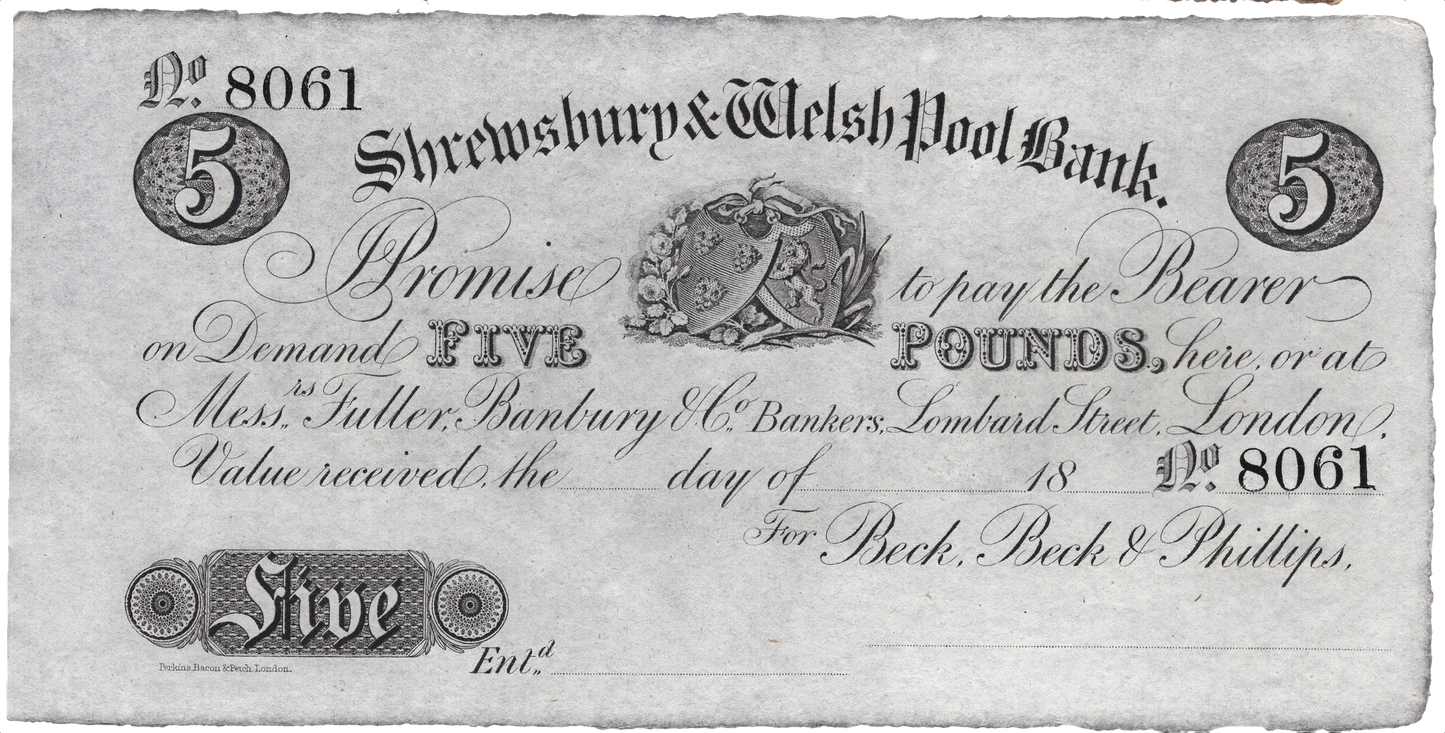 No. 8061
Shrewsbury & Welsh Pool Bank.
5 5
I Promise to pay the Bearer
on Demand FIVE POUNDS, here, or at
Messrs. Fuller, Banbury & Co. Bankers, Lombard Street, London,
Value received, the day of 18 No. 8061
For Beck, Beck & Phillips,
Five
Perkins, Bacon & Petch, London.
Entd.